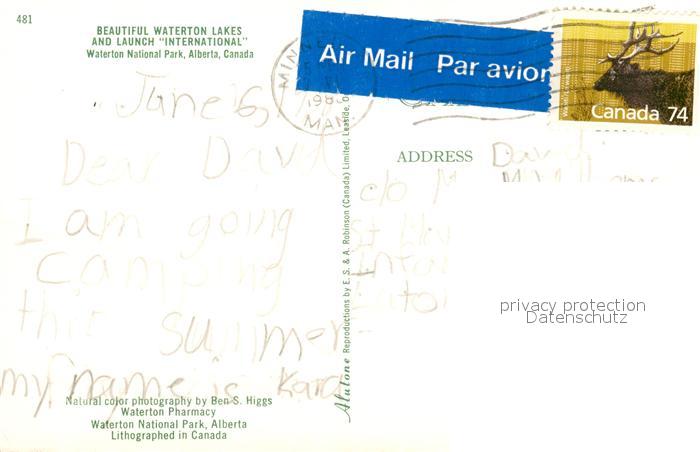 481
BEAUTIFUL WATERTON LAKES
AND LAUNCH "INTERNATIONAL"
Waterton National Park, Alberta, Canada
Air Mail Par avion
Canada 74
MAN
June 6,
Dear David
I am going
camping
this summer
my name is Kara
Natural color photography by Ben S. Higgs
Waterton Pharmacy
Waterton National Park, Alberta
Lithographed in Canada
Alutone Reproductions by E. S. & A. Robinson (Canada) Limited, Leaside, O
ADDRESS David
c/o
St
privacy protection
Datenschutz